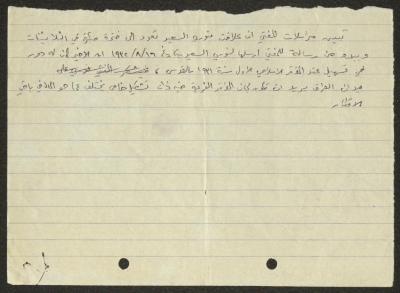 تبين مراسلات المفتي ان علاقته بنوري السعيد تعود الى فترة مبكرة في الثلاثينات
ويبدو من رسالة للمفتي ارسلها لنوري السعيد بتاريخ ١٩٣٢/٨/١٦ ان الاخير كان له دور
في تسهيل عقد المؤتمر الاسلامي الاول سنة ١٩٣١ بالقدس ،
ان العراق يريد ان تكون لجان المؤتمر الفرعية فيه ذات تشكيل خاص يختلف عما هو الحال في باقي
الاقطار